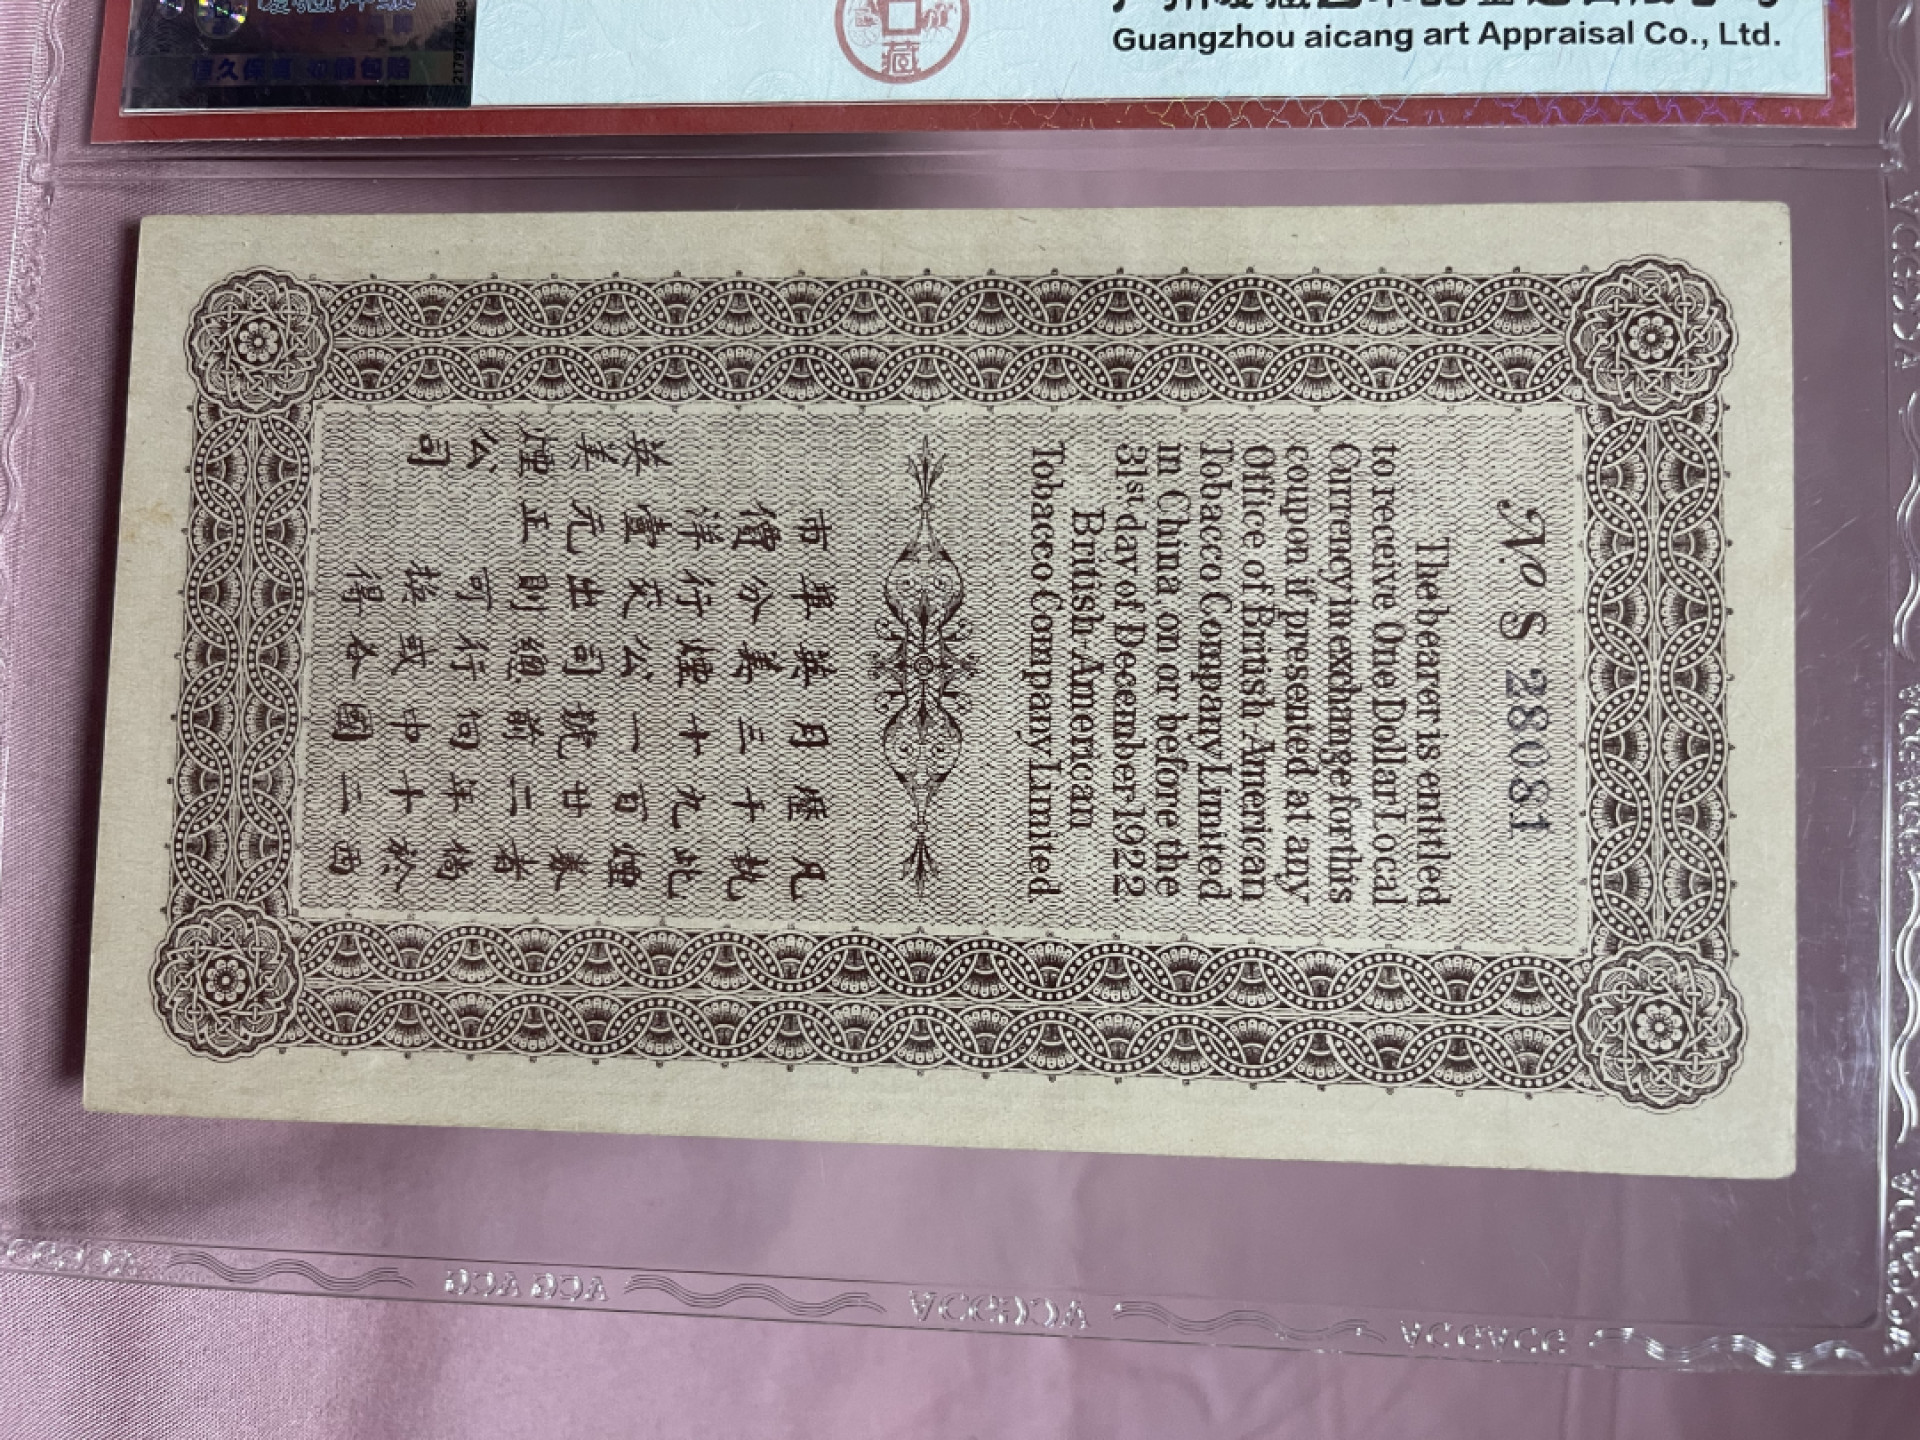 广州爱藏艺术品鉴定有限公司
Guangzhou aicang art Appraisal Co., Ltd.
藏
No S 28081
The bearer is entitled
to receive One Dollar Local
Currency in exchange for this
coupon if presented at any
Office of British American
Tobacco Company Limited
in China, on or before the
31st day of December 1922.
British American
Tobacco Company Limited
凡執此煙券者倘於西
歷千九百廿二年十二
月三十一號前向中國
英美煙公司總行或各
埠分行交出則可換得
市價洋壹元正
英美煙公司